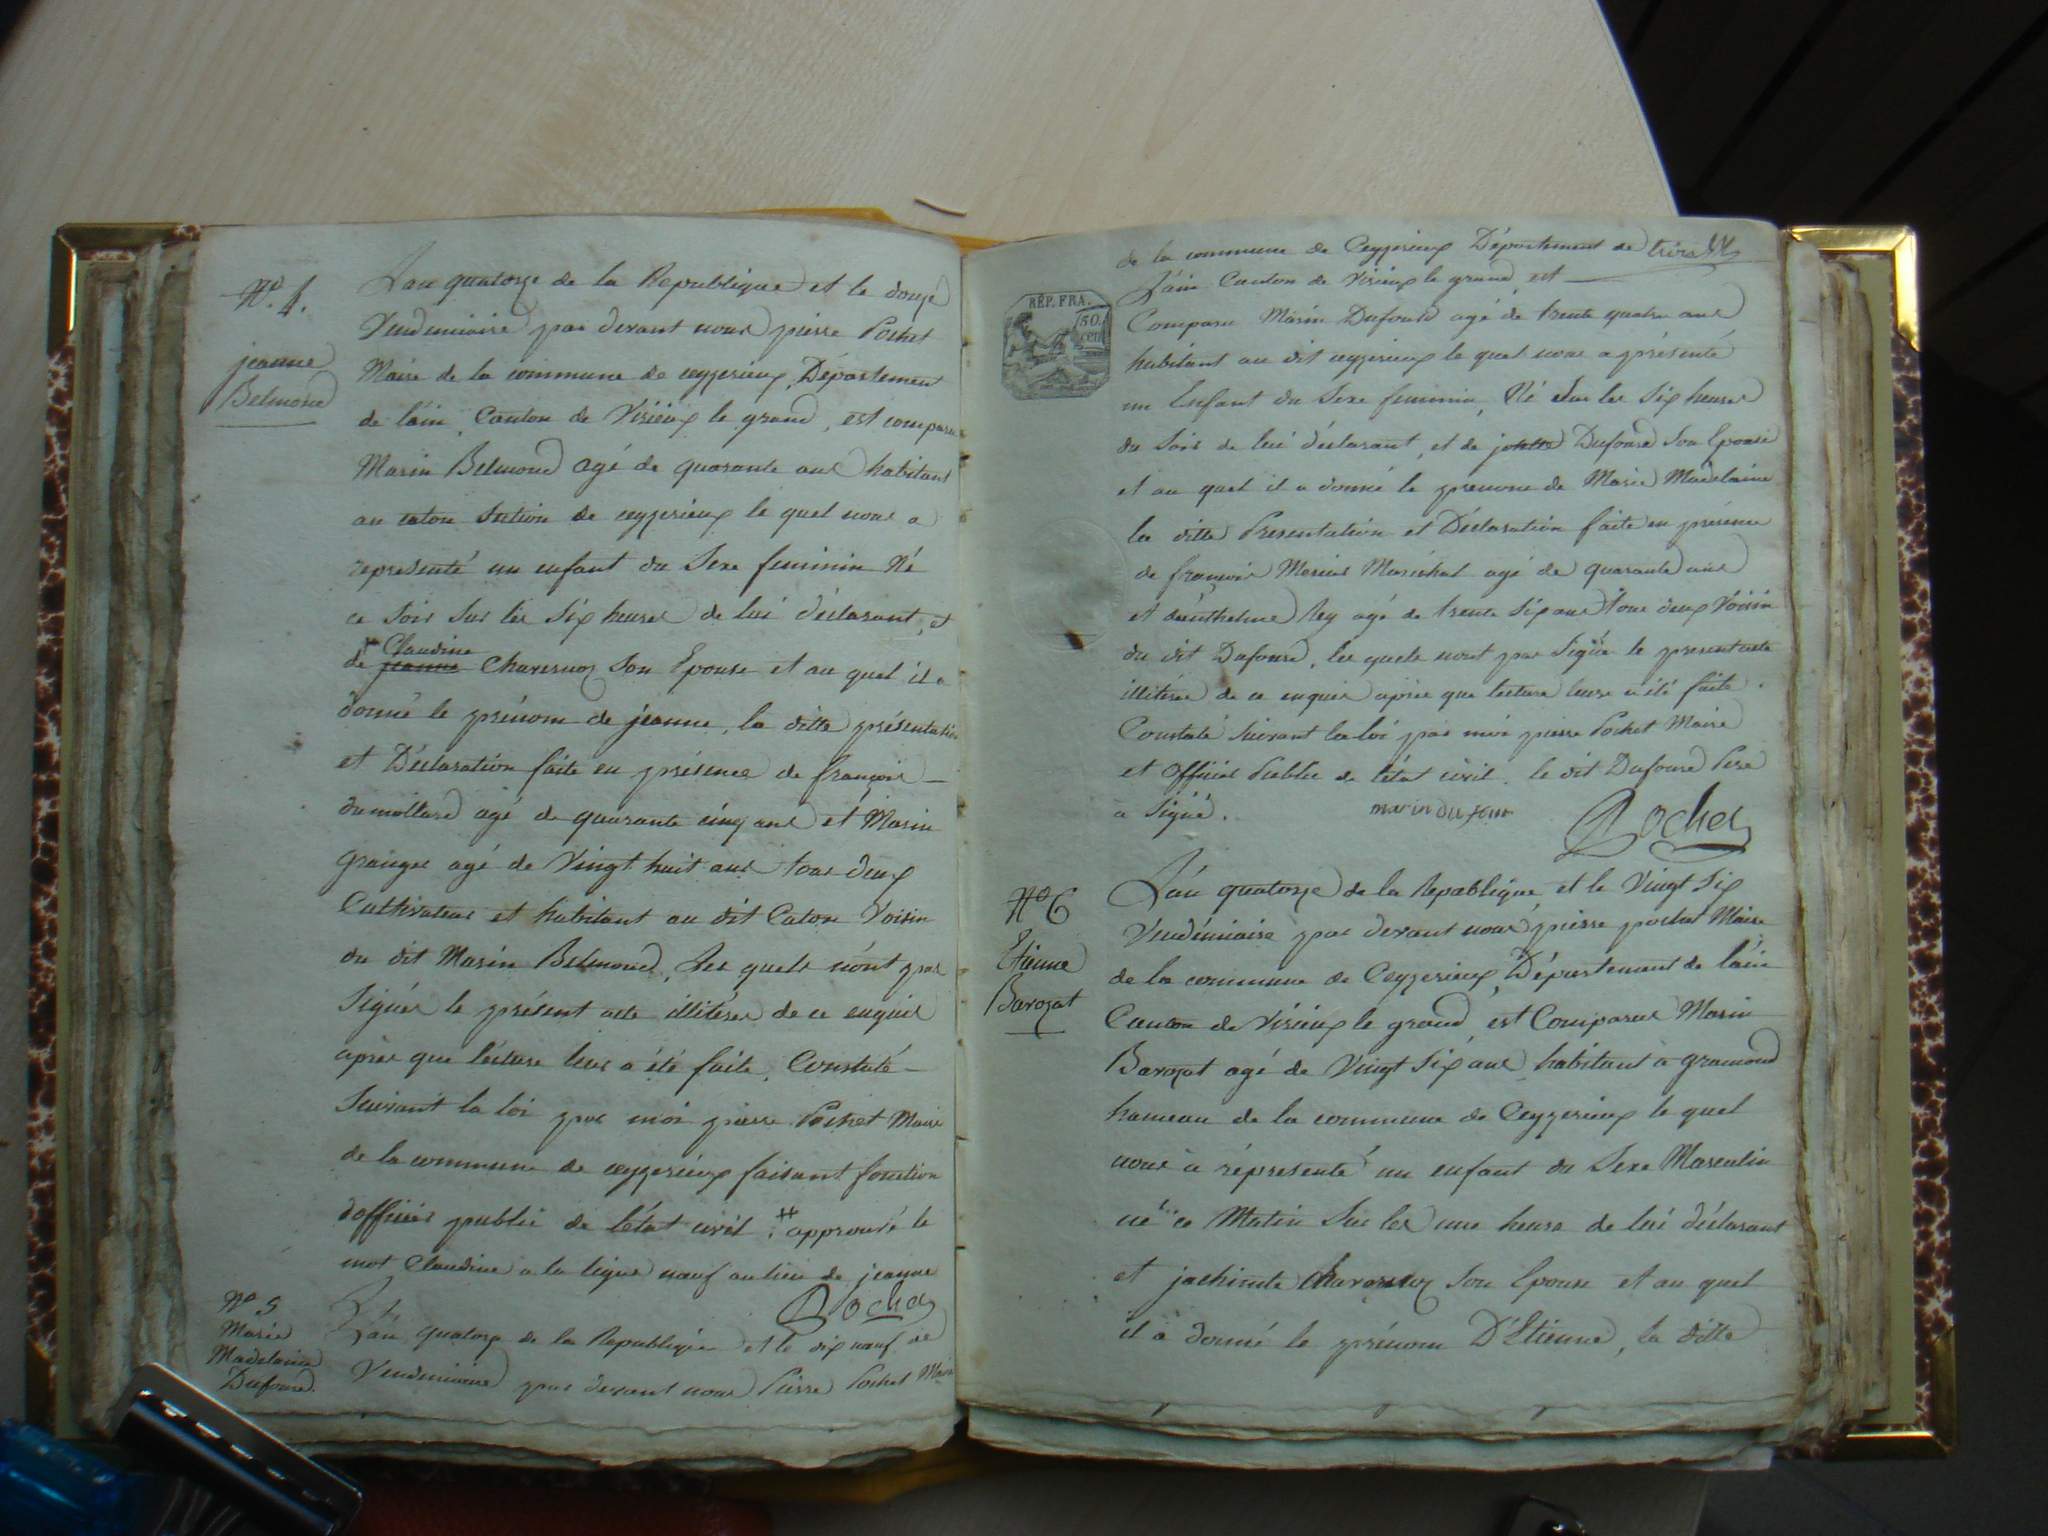 Nº. 4.
jeanne
Belmond
Lan quatorze de la Republique et le douze
Vendemiaire par devant nous pierre Pochet
Maire de la commune de ceyzerieux, Département
de l'ain, Canton de Virieux le grand, est comparu
Marin Belmond agé de quarante ans habitant
au caton Section de ceyzerieux le quel nous a
representé un enfant du Sexe feminin Né
ce soir sur les Six heures de lui déclarant, et
Claudine
de jeanne Chavernoz Son Epouse et au quel il a
donné le prénom de jeanne, la ditte présentation
et Déclaration faite en présence de françois
dumollard agé de quarante cinq ans et Marin
Granger agé de Vingt huit ans tous deux
Cultivateur et habitant au dit Caton Voisin
du dit Marin Belmond, Les quels n'ont pas
Signés le présent acte illitérés de ce enquis
après que lecture leur a été faite, Constaté
Suivant la loi par moi pierre Pochet Maire
de la commune de ceyzerieux faisant fonction
d'officier public de l'état civil. # approuvé le
mot Claudine a la ligne neuf au lieu de jeanne
Pochet
Nº 5
Marie
Madelaine
Dufourd.
L'an quatorze de la Republique et le dix neuf de
Vendemiaire par devant nous Pierre Pochet Maire
de la commune de Ceyzerieux Département de
L'ain Canton de Virieux le grand, est
RÉP. FRA.
50.
CEN
Comparu Marin Dufourd agé de trente quatre ans
habitant au dit ceyzerieux le quel nous a présenté
un Enfant du Sexe feminin, Né Sur les Six heures
du Soir de lui déclarant, et de Dufourd Son Epouse
et au quel il a donné le prenom de Marie Madelaine
la ditte Presentation et Déclaration faite en présence
de françois Mercier Maréchal agé de quarante ans
et Rey agé de trente Six ans tous deux Voisin
du dit Dufourd, les quels n'ont pas Signé le present acte
illitérés de ce enquis après que lecture leurs a été faite.
Constaté Suivant la loi par moi pierre Pochet Maire
et Officier Public de l'état civil. le dit Dufourd Pere
a Signé.
marin dufour
Pochet
Nº 6
Etienne
Barozat
L'an quatorze de la Republique, et le Vingt Six
Vendémiaire par devant nous pierre pochet Maire
de la commune de Ceyzerieux, Département de l'ain
Canton de Virieux le grand, est Comparus Marin
Barozat agé de Vingt Six ans habitant a gramond
hameau de la commune de Ceyzerieux le quel
nous à répresenté un enfant du Sexe Masculin
né ce Matin Sur les une heure de lui déclarant
et jachinte Chavernoz Son Epouse et au quel
il a donné le prénom D'Etienne, la ditte